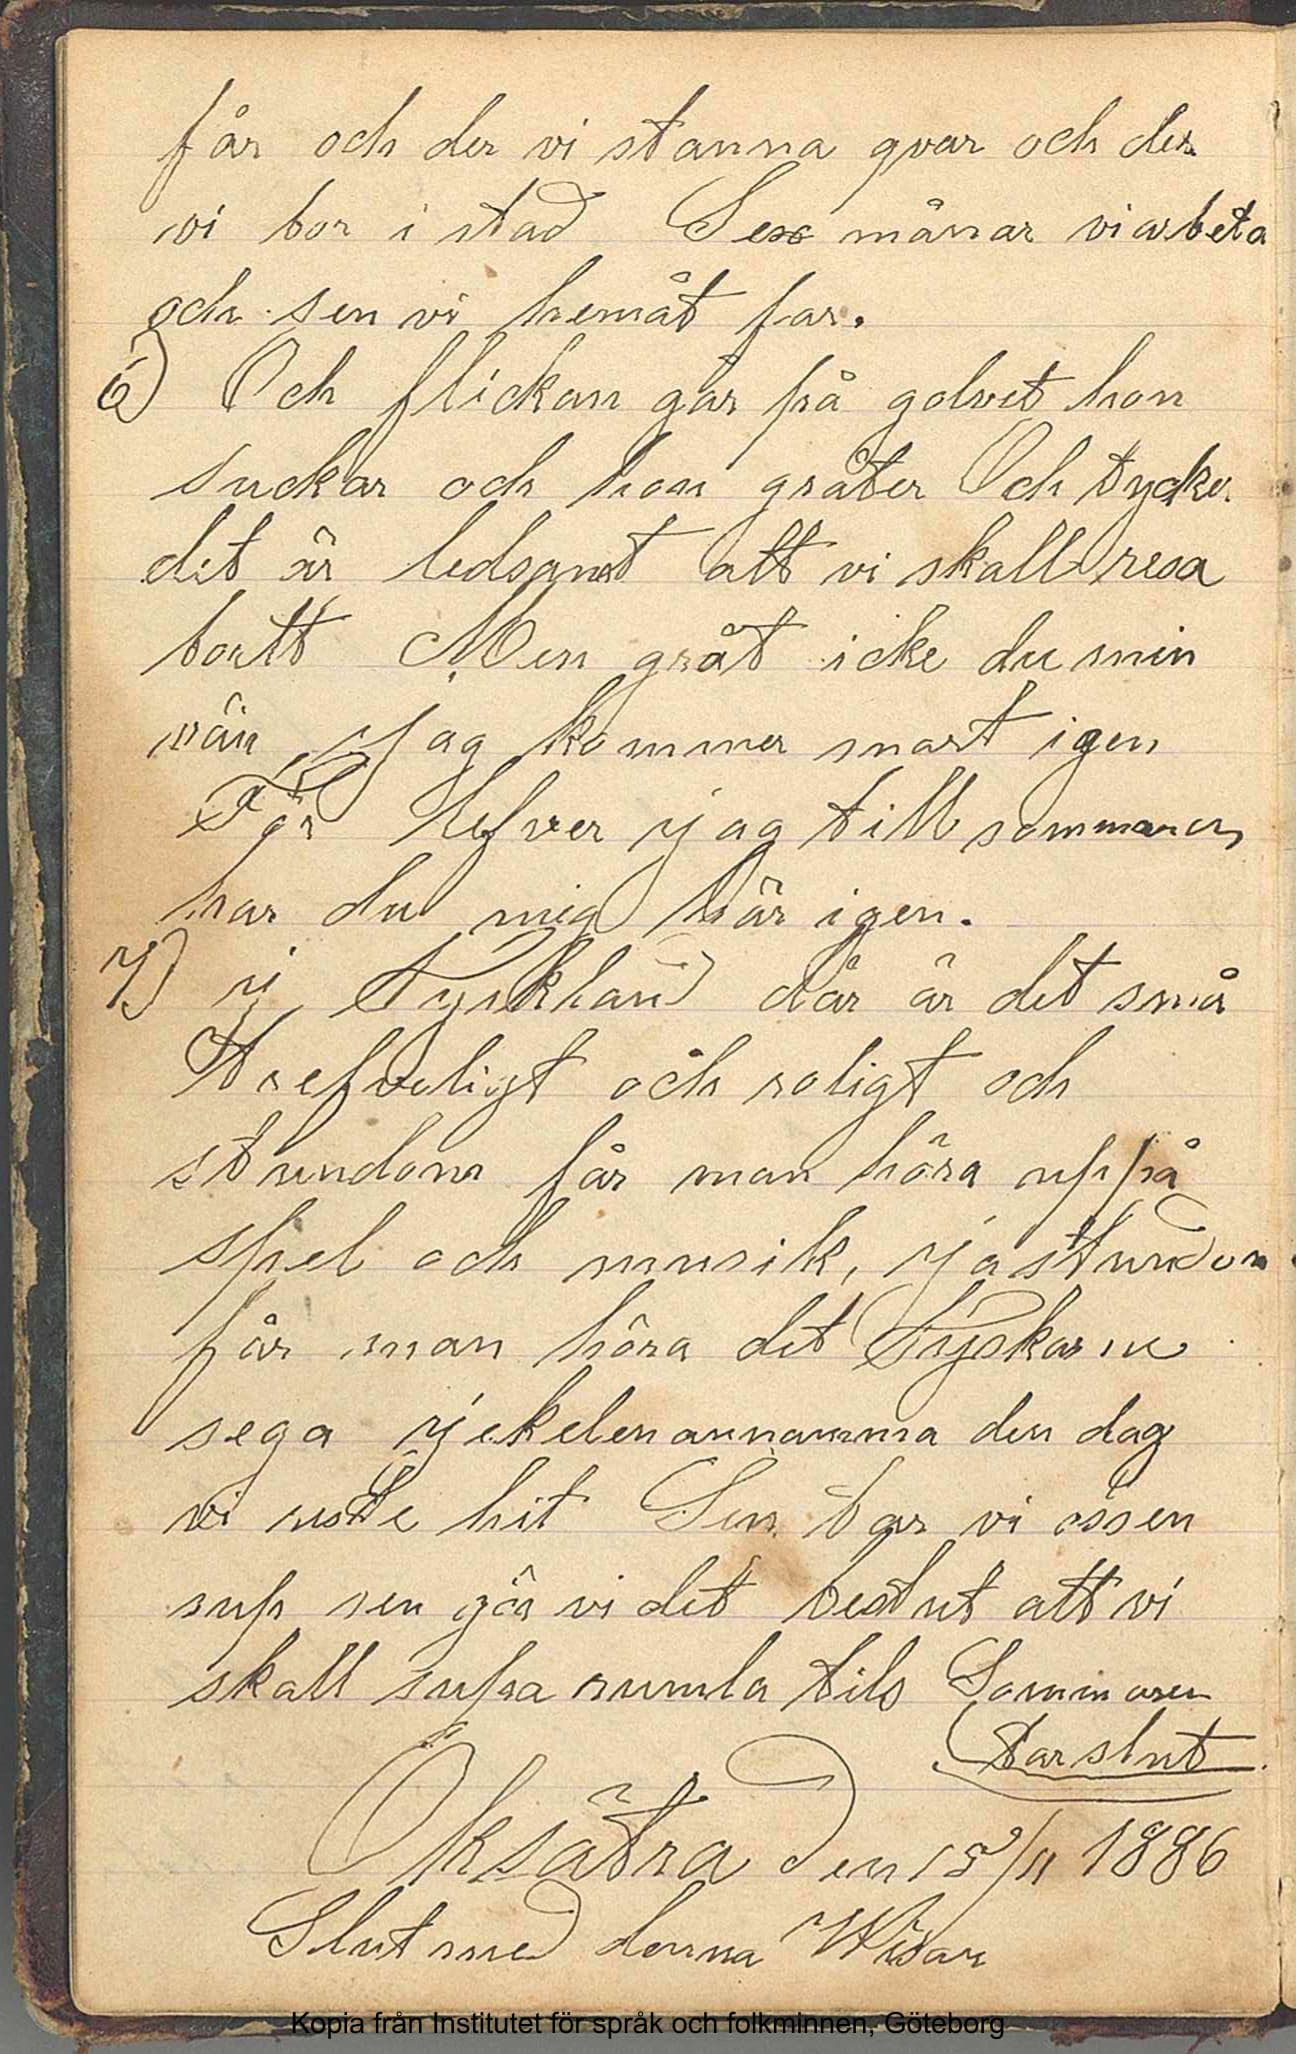 får och der vi stanna qvar och der
vi bor i stad Sex månar vi arbeta
och sen vi hemåt far.
6) Och flickan går på golvet hon
suckar och hon gråter Och tycker
det är ledsamt att vi skall resa
bortt Men gråt icke du min
vän jag kommer snart igen
För lefver jag till sommaren
har du mig här igen.
7) i Tyskland där är det små
trefveligt och roligt och
stundom får man höra uppå
spel och musik, ja stundom
får man höra det Tyskarne
sega jekelen annamma den dag
vi reste hit Sen tar vi oss en
sup sen gör vi det beslut att vi
skall supa rumla tils Sommaren
tar slut
Öksätra Den 15/11 1886
Slut med denna Wisan
Kopia från Institutet för språk och folkminnen, Göteborg